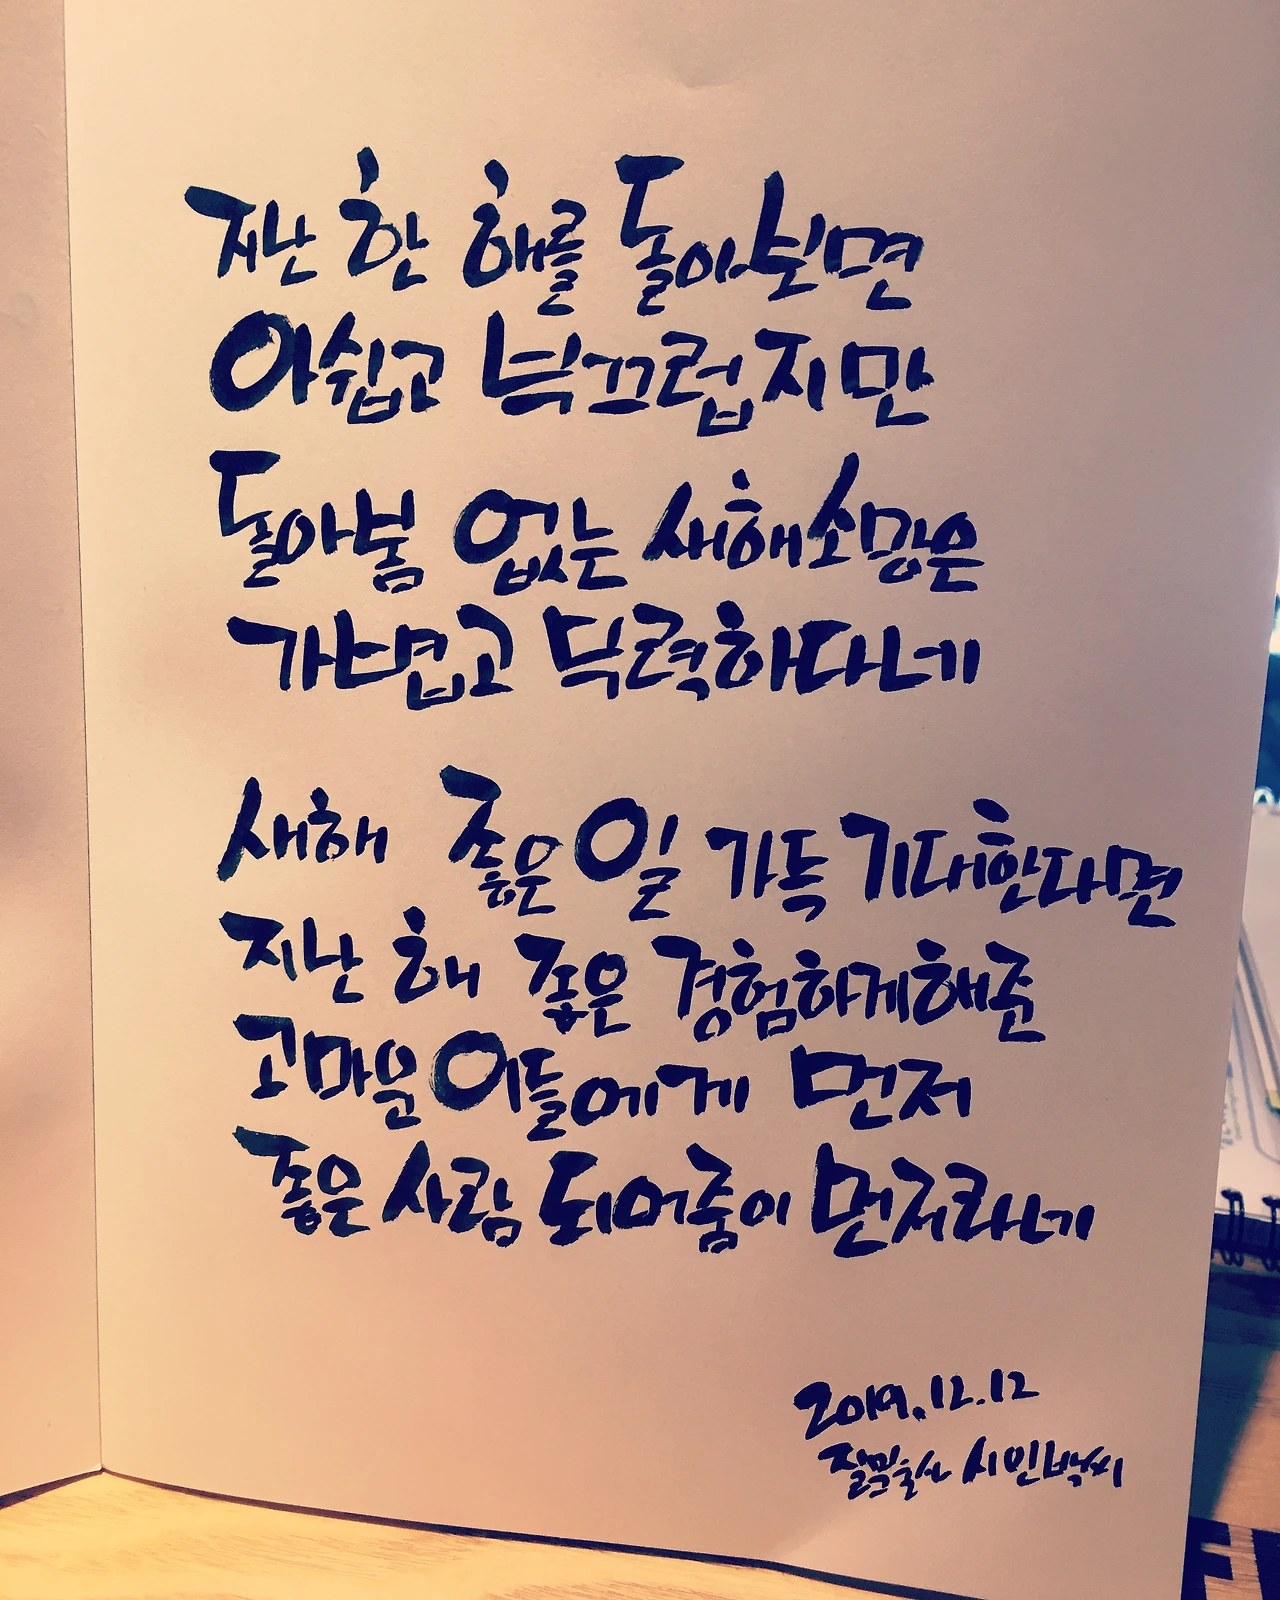 지난 한 해를 돌아보면
아쉽고 부끄럽지만
돌아봄 없는 새해소망은
가볍고 무력하다네
새해 좋은 일 가득 기대한다면
지난 해 좋은 경험하게해준
고마운 이들에게 먼저
좋은 사람 되어줌이 먼저라네
2019.12.12
시민박씨